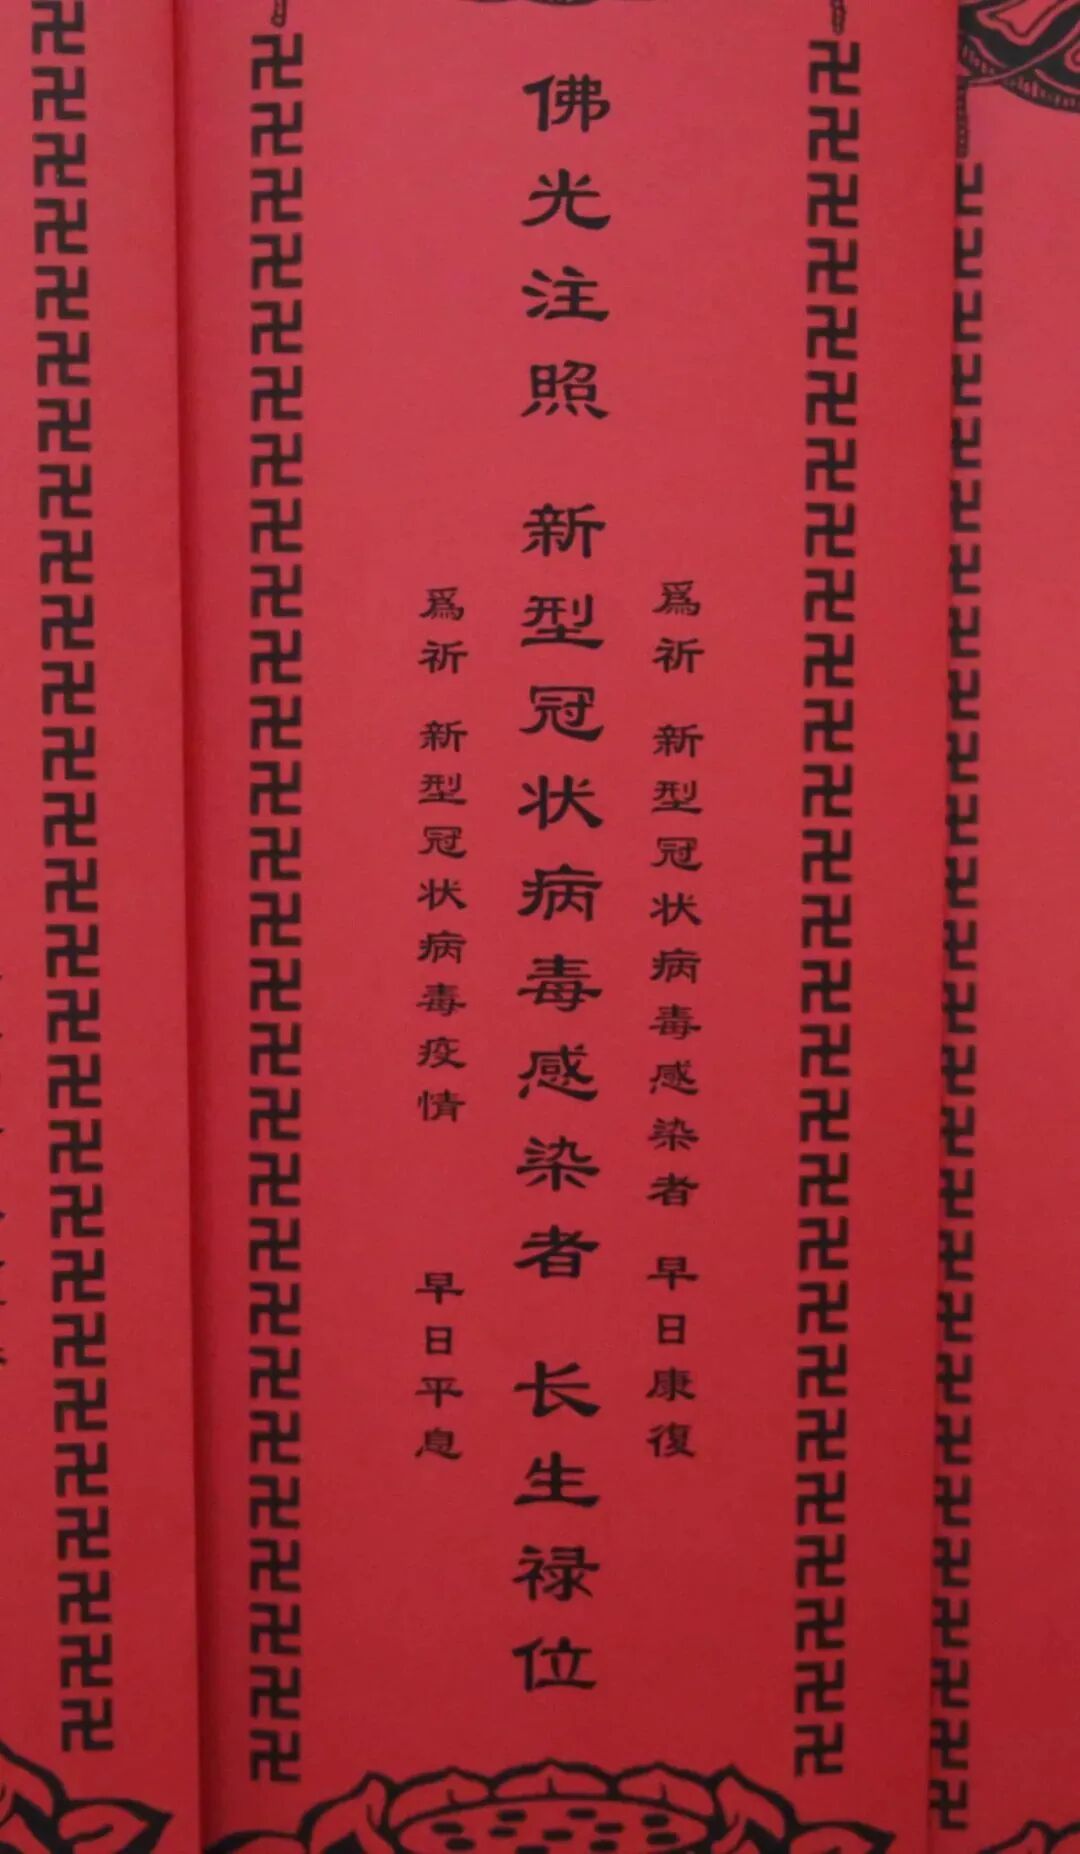 爲祈 新型冠状病毒感染者 早日康復
佛光注照 新型冠状病毒感染者 长生禄位
爲祈 新型冠状病毒疫情 早日平息